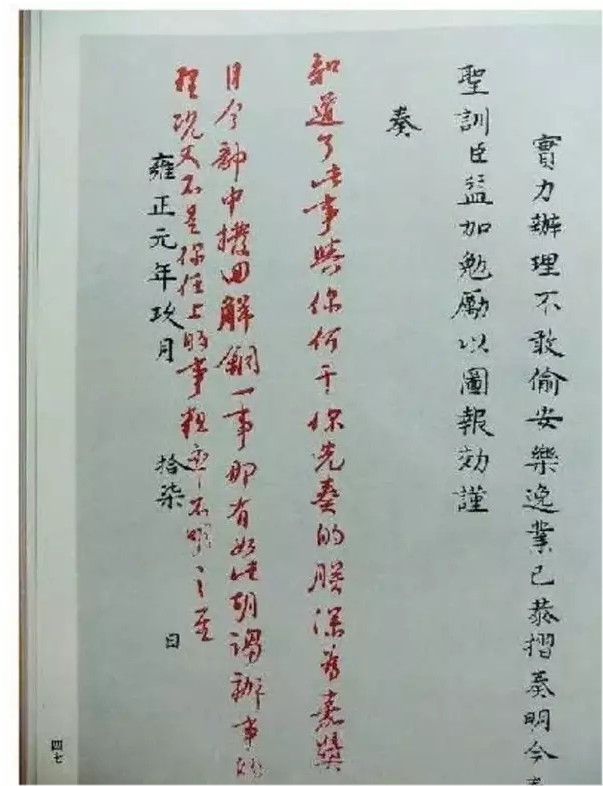 實力辦理不敢偷安樂逸業已恭摺奏明今
聖訓臣益加勉勵以圖報効謹
奏
知道了此事與你何干你先奏的朕深為嘉獎
目今部中撥回解餉一事那有如此胡謅辦事的
理況又不是你任上的事粗率不明之至
雍正元年玖月 拾柒 日
四七